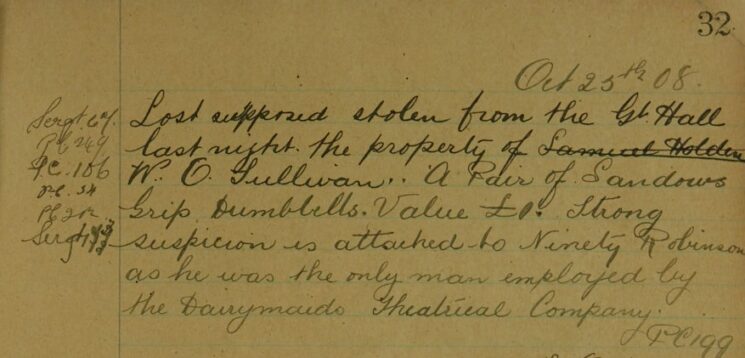 32
Oct 25th 08.
Sergt 67. Lost supposed stolen from the Gt. Hall
PC 249 last night. the property of Samuel Holden
PC. 106 W. O. Sullivan.. A Pair of Sandows
PC. 34 Grip Dumbbells. Value £1. Strong
Sergt suspicion is attached to Ninety Robinson
as he was the only man employed by
the Dairymaids Theatrical Company.
PC 199